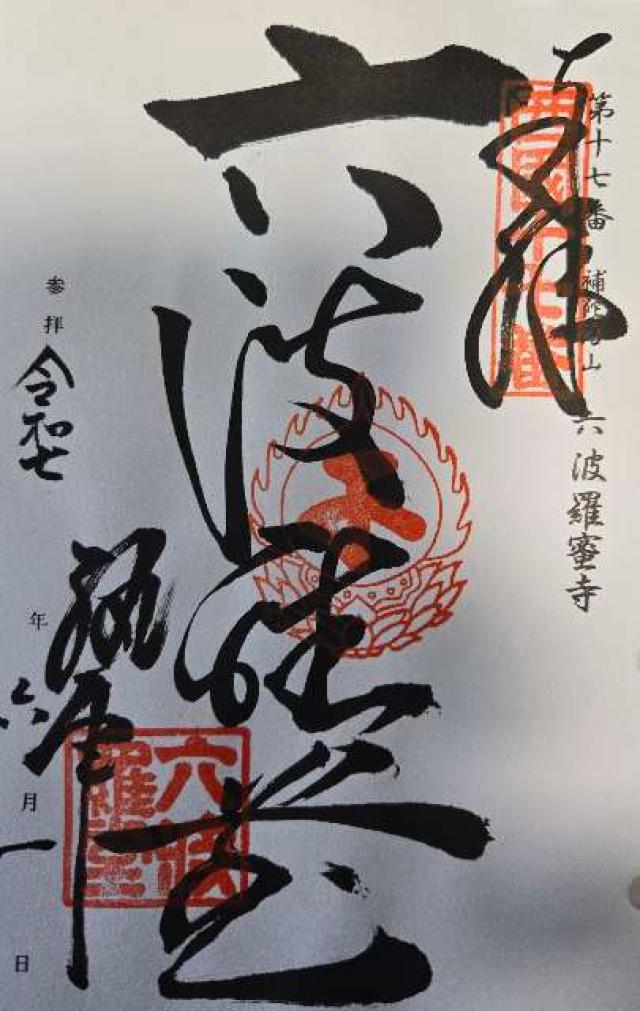 奉拝
第十七番 補陀洛山 六波羅蜜寺
西国十七番
六波羅堂
参拝 令和七年 六月 一日
六波羅密